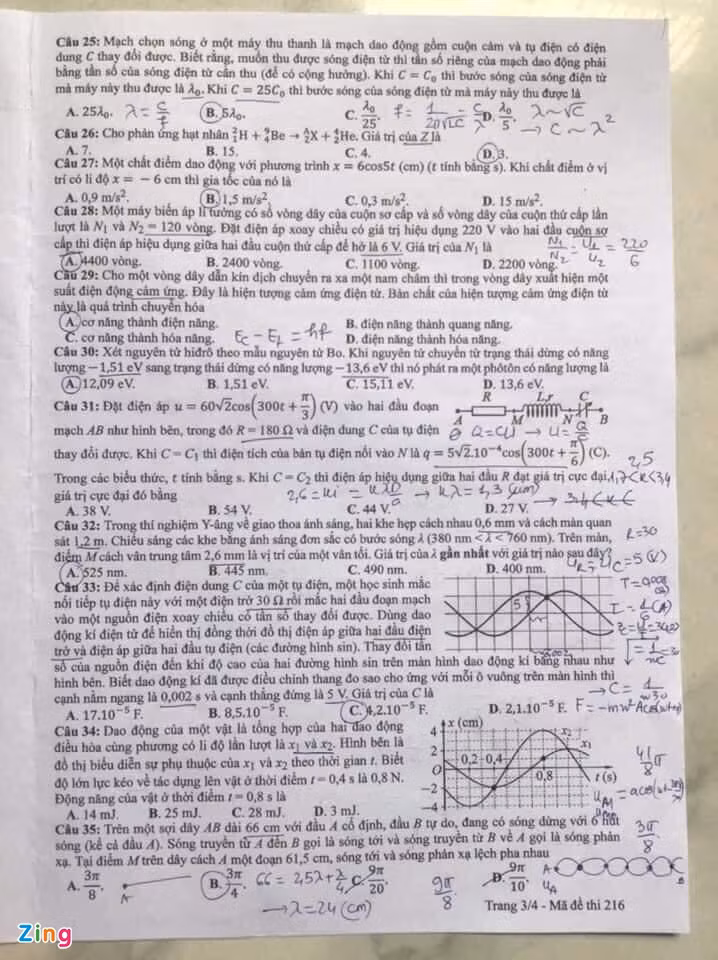 Câu 25: Mạch chọn sóng ở một máy thu thanh là mạch dao động gồm cuộn cảm và tụ điện có điện
dung C thay đổi được. Biết rằng, muốn thu được sóng điện từ thì tần số riêng của mạch dao động phải
bằng tần số của sóng điện từ cần thu (để có cộng hưởng). Khi C = C₀ thì bước sóng của sóng điện từ
mà máy này thu được là λ₀. Khi C = 25C₀ thì bước sóng của sóng điện từ mà máy này thu được là
A. 25λ₀. λ = c/f B. 5λ₀. C. λ₀/25. D. λ₀/5. λ ~ √C → C ~ λ²
Câu 26: Cho phản ứng hạt nhân ²₁H + ⁹₄Be → ᴬ_Z X + ⁴₂He. Giá trị của Z là
A. 7. B. 15. C. 4. D. 3.
Câu 27: Một chất điểm dao động với phương trình x = 6cos5t (cm) (t tính bằng s). Khi chất điểm ở vị
trí có li độ x = − 6 cm thì gia tốc của nó là
A. 0,9 m/s². B. 1,5 m/s². C. 0,3 m/s². D. 15 m/s².
Câu 28: Một máy biến áp lí tưởng có số vòng dây của cuộn sơ cấp và số vòng dây của cuộn thứ cấp lần
lượt là N₁ và N₂ = 120 vòng. Đặt điện áp xoay chiều có giá trị hiệu dụng 220 V vào hai đầu cuộn sơ
cấp thì điện áp hiệu dụng giữa hai đầu cuộn thứ cấp để hở là 6 V. Giá trị của N₁ là
N₁/N₂ = U₁/U₂ = 220/6
A. 4400 vòng. B. 2400 vòng. C. 1100 vòng. D. 2200 vòng.
Câu 29: Cho một vòng dây dẫn kín dịch chuyển ra xa một nam châm thì trong vòng dây xuất hiện một
suất điện động cảm ứng. Đây là hiện tượng cảm ứng điện từ. Bản chất của hiện tượng cảm ứng điện từ
này là quá trình chuyển hóa
A. cơ năng thành điện năng. B. điện năng thành quang năng.
C. cơ năng thành hóa năng. D. điện năng thành hóa năng.
Câu 30: Xét nguyên tử hiđrô theo mẫu nguyên tử Bo. Khi nguyên tử chuyển từ trạng thái dừng có năng
lượng −1,51 eV sang trạng thái dừng có năng lượng −13,6 eV thì nó phát ra một phôtôn có năng lượng là
A. 12,09 eV. B. 1,51 eV. C. 15,11 eV. D. 13,6 eV.
Câu 31: Đặt điện áp u = 60√2cos(300t + π/3) (V) vào hai đầu đoạn
R L,r C
A M N B
mạch AB như hình bên, trong đó R = 180 Ω và điện dung C của tụ điện
thay đổi được. Khi C = C₁ thì điện tích của bản tụ điện nối vào N là q = 5√2.10⁻⁴cos(300t + π/6) (C).
Trong các biểu thức, t tính bằng s. Khi C = C₂ thì điện áp hiệu dụng giữa hai đầu R đạt giá trị cực đại,
giá trị cực đại đó bằng
A. 38 V. B. 54 V. C. 44 V. D. 27 V.
Câu 32: Trong thí nghiệm Y-âng về giao thoa ánh sáng, hai khe hẹp cách nhau 0,6 mm và cách màn quan
sát 1,2 m. Chiếu sáng các khe bằng ánh sáng đơn sắc có bước sóng λ (380 nm < λ < 760 nm). Trên màn,
điểm M cách vân trung tâm 2,6 mm là vị trí của một vân tối. Giá trị của λ gần nhất với giá trị nào sau đây?
A. 525 nm. B. 445 nm. C. 490 nm. D. 400 nm.
Câu 33: Để xác định điện dung C của một tụ điện, một học sinh mắc
nối tiếp tụ điện này với một điện trở 30 Ω rồi mắc hai đầu đoạn mạch
vào một nguồn điện xoay chiều có tần số thay đổi được. Dùng dao
động kí điện tử để hiển thị đồng thời đồ thị điện áp giữa hai đầu điện
trở và điện áp giữa hai đầu tụ điện (các đường hình sin). Thay đổi tần
số của nguồn điện đến khi độ cao của hai đường hình sin trên màn hình dao động kí bằng nhau như
hình bên. Biết dao động kí đã được điều chỉnh thang đo sao cho ứng với mỗi ô vuông trên màn hình thì
cạnh nằm ngang là 0,002 s và cạnh thẳng đứng là 5 V. Giá trị của C là
A. 17.10⁻⁵ F. B. 8,5.10⁻⁵ F. C. 4,2.10⁻⁵ F. D. 2,1.10⁻⁵ F.
Câu 34: Dao động của một vật là tổng hợp của hai dao động
điều hòa cùng phương có li độ lần lượt là x₁ và x₂. Hình bên là
đồ thị biểu diễn sự phụ thuộc của x₁ và x₂ theo thời gian t. Biết
độ lớn lực kéo về tác dụng lên vật ở thời điểm t = 0,4 s là 0,8 N.
Động năng của vật ở thời điểm t = 0,8 s là
A. 14 mJ. B. 25 mJ. C. 28 mJ. D. 3 mJ.
x (cm)
4
2
0
−2
−4
0,2 0,4 0,8 t (s)
x₂
x₁
Câu 35: Trên một sợi dây AB dài 66 cm với đầu A cố định, đầu B tự do, đang có sóng dừng với 6 nút
sóng (kể cả đầu A). Sóng truyền từ A đến B gọi là sóng tới và sóng truyền từ B về A gọi là sóng phản
xạ. Tại điểm M trên dây cách A một đoạn 61,5 cm, sóng tới và sóng phản xạ lệch pha nhau
A. 3π/8. B. 3π/4. C. 9π/20. D. 9π/10.
→ λ = 24 (cm)
9π/8
Trang 3/4 - Mã đề thi 216
Zing